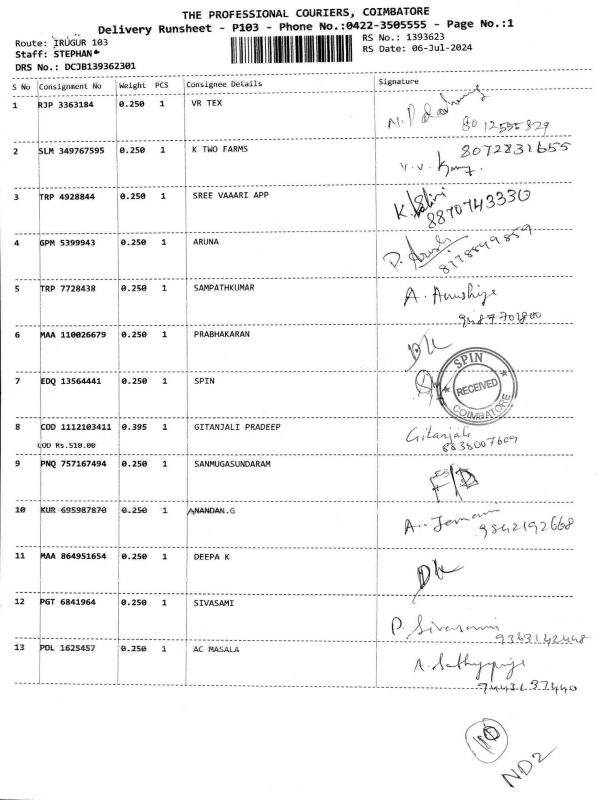 THE PROFESSIONAL COURIERS, COIMBATORE
Delivery Runsheet - P103 - Phone No.:0422-3505555 - Page No.:1
Route: IRUGUR 103
RS No.: 1393623
Staff: STEPHAN
RS Date: 06-Jul-2024
DRS No.: DCJB139362301
S No Consignment No Weight PCS Consignee Details Signature
1 RJP 3363184 0.250 1 VR TEX
8012555829
2 SLM 349767595 0.250 1 K TWO FARMS 8072831655
3 TRP 4928844 0.250 1 SREE VAAARI APP
8870743330
4 GPM 5399943 0.250 1 ARUNA
5 TRP 7728438 0.250 1 SAMPATHKUMAR
6 MAA 110026679 0.250 1 PRABHAKARAN
7 EDQ 13564441 0.250 1 SPIN
SPIN
RECEIVED
COIMBATORE
8 COD 1112103411 0.395 1 GITANJALI PRADEEP Gitanjali
COD Rs.510.00 8838007609
9 PNQ 757167494 0.250 1 SANMUGASUNDARAM
10 KUR 695987870 0.250 1 ANANDAN.G
9842192668
11 MAA 864951654 0.250 1 DEEPA K
12 PGT 6841964 0.250 1 SIVASAMI
P. Sivasami
9363142448
13 POL 1625457 0.250 1 AC MASALA
7443137440
10
ND2